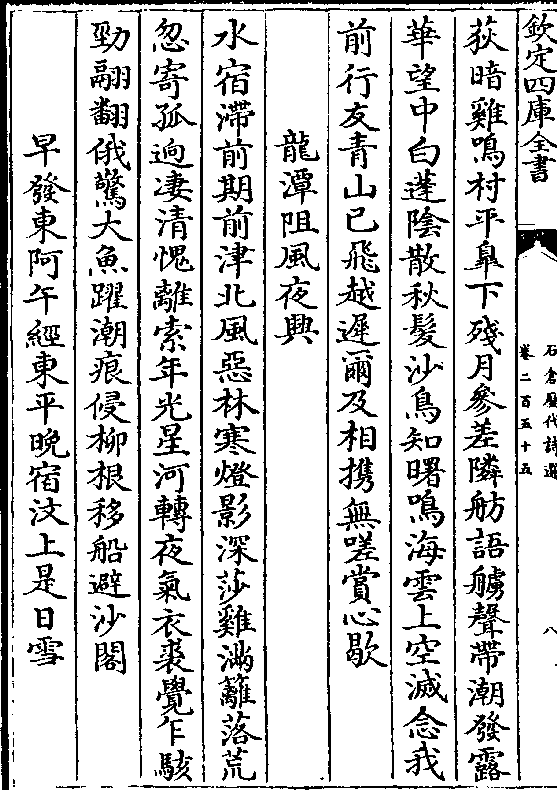 欽定四庫全書
石倉歷代詩選
卷二百五十五
八
荻暗雞鳴村平臯下殘月參差隣舫語艣聲帶潮發露
華望中白蓬陰散秋髮沙鳥知曙鳴海雲上空滅念我
前行友青山已飛越遲爾及相携無嗟賞心歇
龍潭阻風夜興
水宿滯前期前津北風惡林寒燈影深莎雞滿籬落荒
忽寄孤逈凄清愧離索年光星河轉夜氣衣裘覺乍駭
勁翮翻俄驚大魚躍潮痕侵柳根移船避沙閣
早發東阿午經東平晚宿汶上是日雪